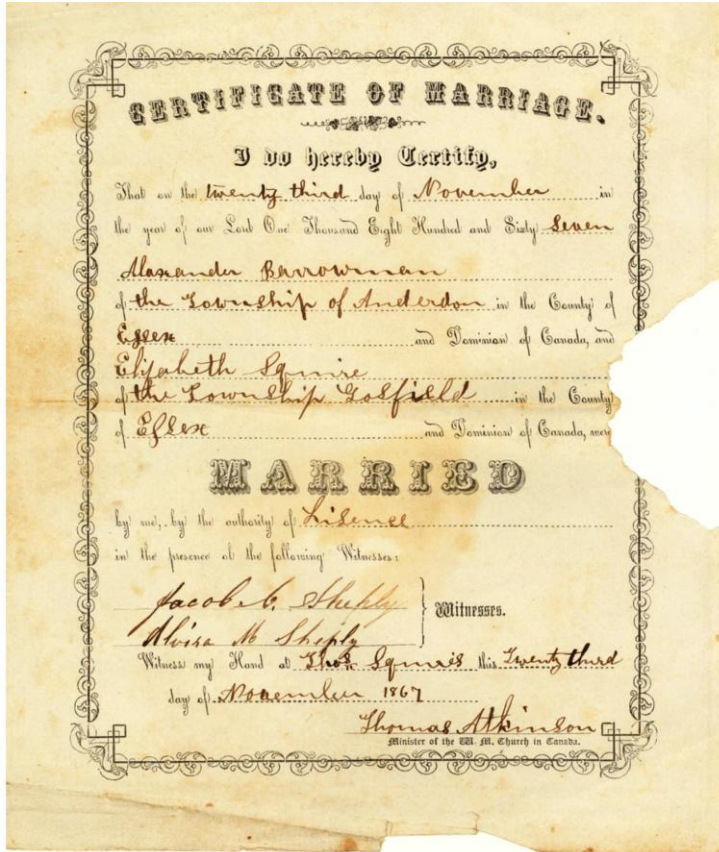 CERTIFICATE OF MARRIAGE.
I do hereby Certify,
That on the twenty third day of November in
the year of our Lord One Thousand Eight Hundred and Sixty Seven
Alaxander Barrowman
of the Township of Anderdon in the County of
Essex and Dominion of Canada, and
Elizabeth Squire
of the Township Gosfield in the County
of Essex and Dominion of Canada, were
MARRIED
by me, by the authority of Lisence
in the presence of the following Witnesses:
Jacob C. Sheply
Alvira M Sheply
Witnesses.
Witness my Hand at Thos. Squires this Twenty third
day of November 1867
Thomas Atkinson
Minister of the W. M. Church in Canada.